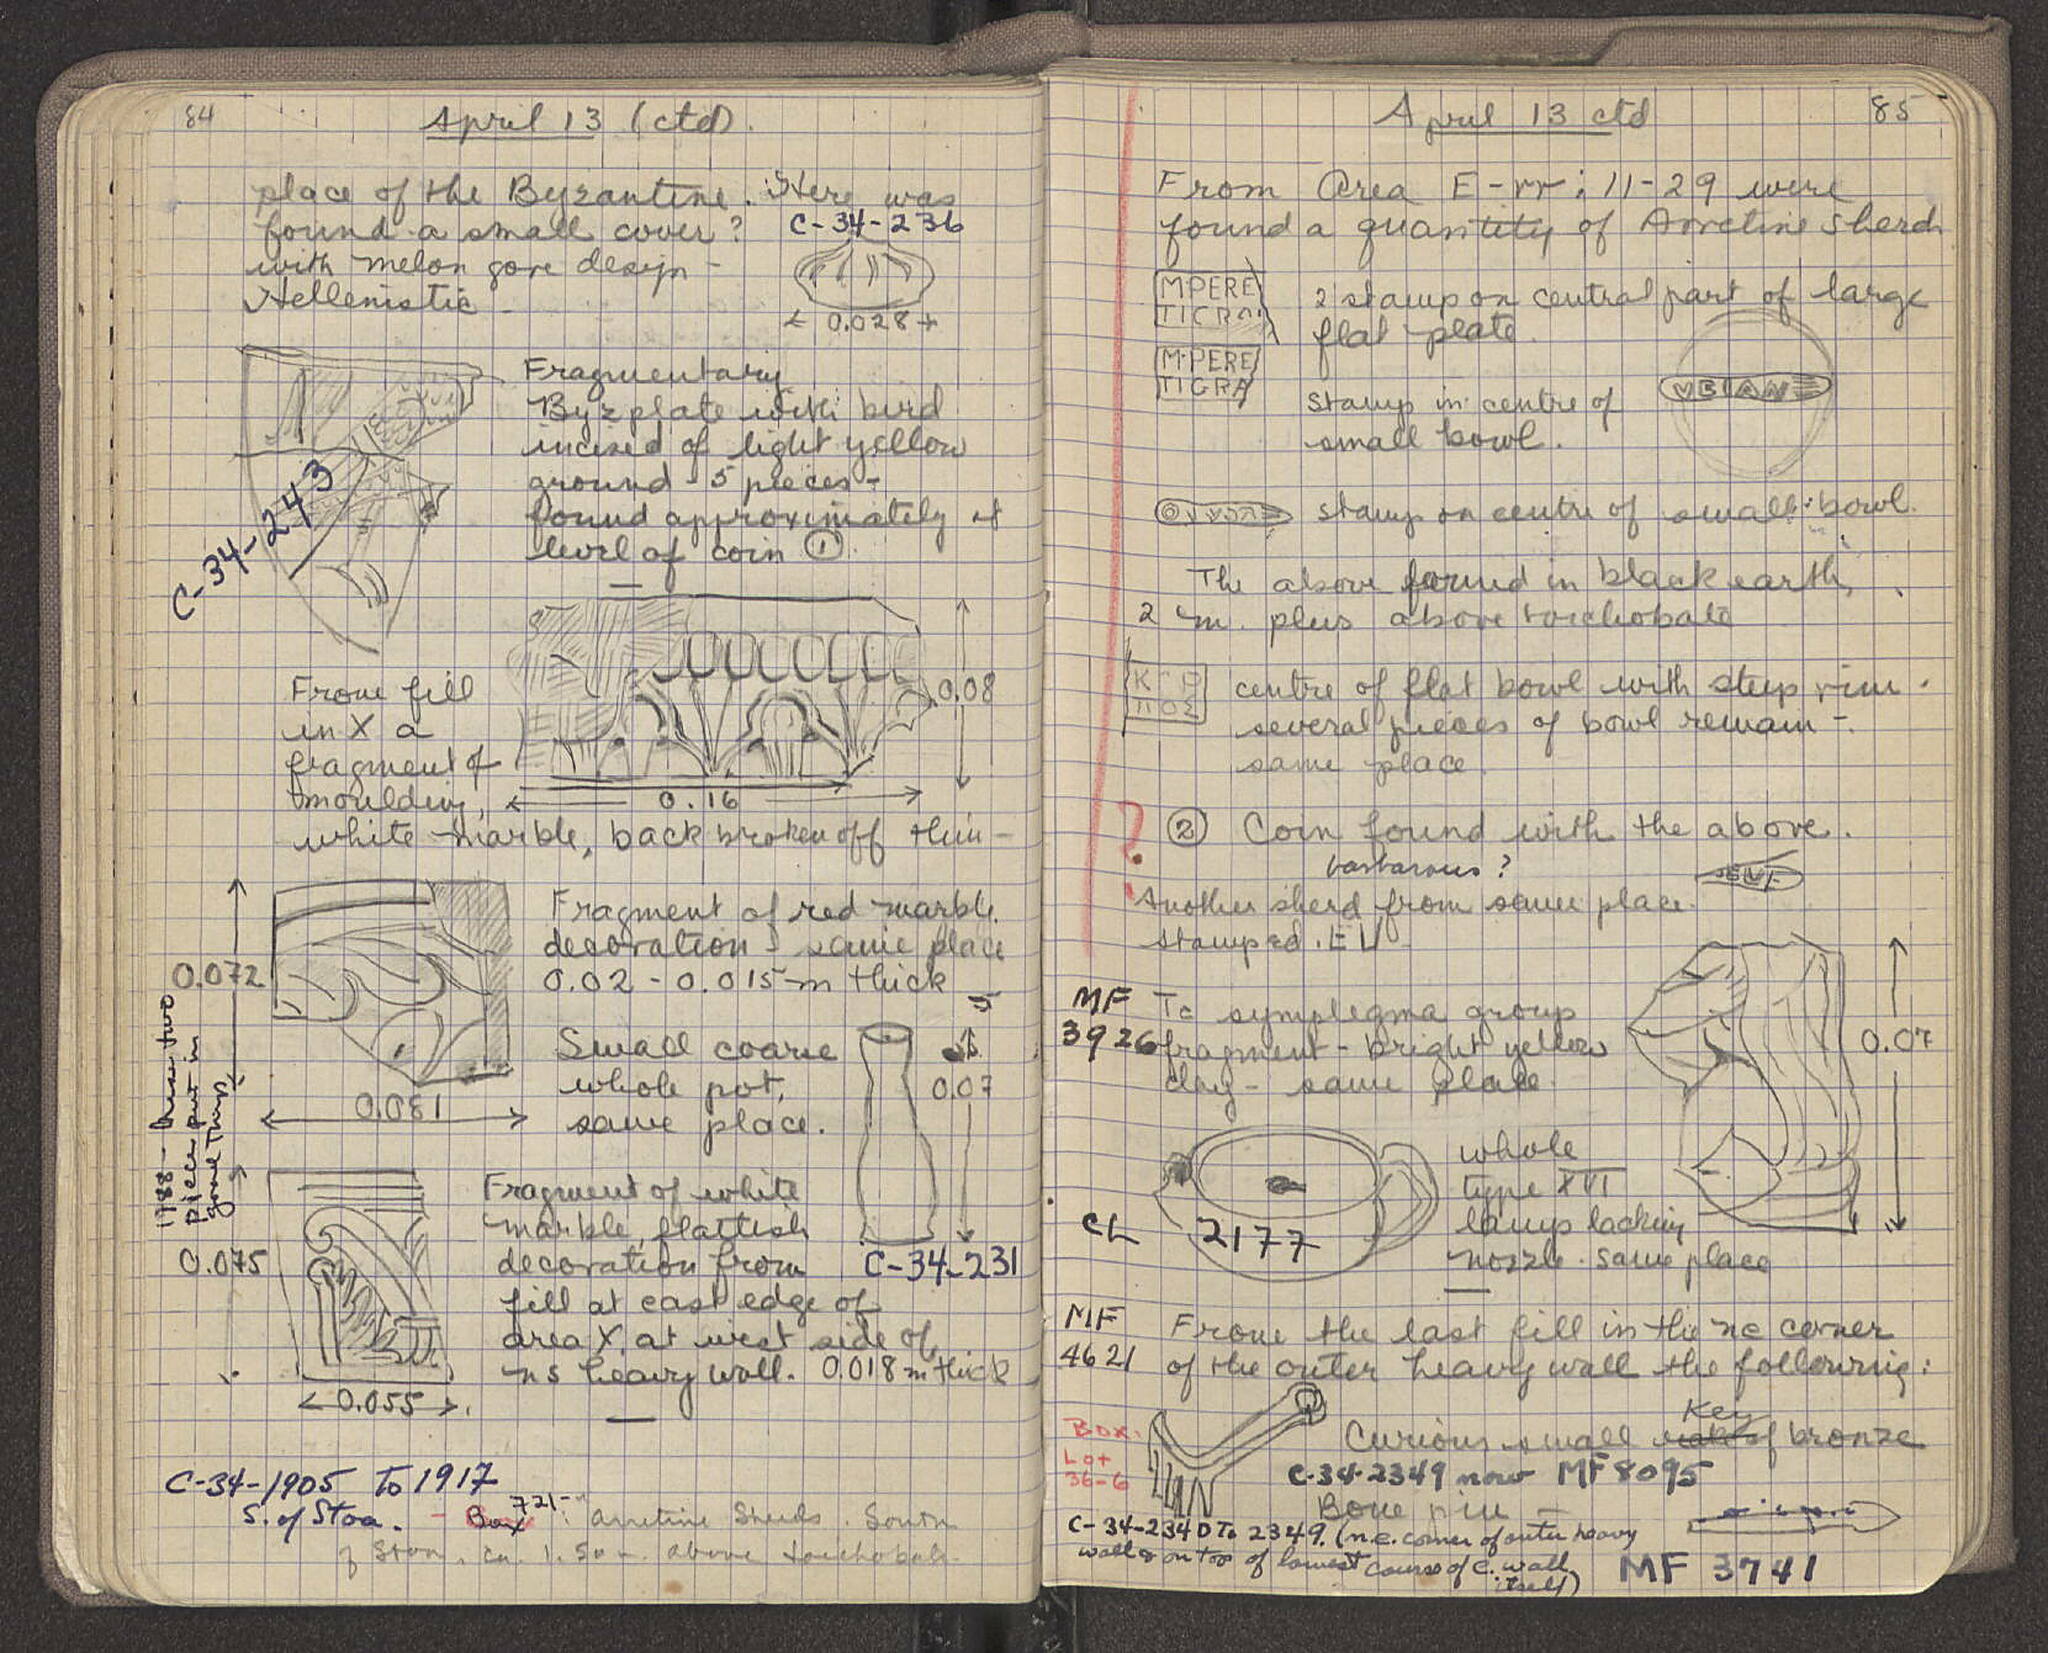 84
April 13 (ctd).
place of the Byzantine. Here was
found a small cover? C-34-236
with melon gore design -
Hellenistic -
0.028
Fragmentary
Byz plate with bird
incised of light yellow
ground 5 pieces -
found approximately at
level of coin ①.
C-34-243
From fill
in X a
fragment of
moulding,
0.08
0.16
white marble, back broken off thin -
Fragment of red marble
decoration same place
0.02 - 0.015 m thick
0.072
0.081
1988 - these two
pieces put in
good things
Small coarse
whole pot,
same place.
0.07
C-34-231
Fragment of white
marble, flattish
decoration from
fill at east edge of
area X, at west side of
ns heavy wall. 0.018 m thick
0.075
0.055
C-34-1905 To 1917
S. of Stoa. - Box 721-: Arretine Sherds. South
of Stoa, ca. 1.50 m. above toichobate
April 13 ctd
85
From Area E-rr; 11-29 were
found a quantity of Arretine sherds
MPERE
TIGRA
2 stamp on central part of large
flat plate.
M·PERE
TIGRA
stamp in centre of
small bowl.
VEIAN
stamp on centre of small bowl.
The above found in black earth,
2 m. plus above toichobate
centre of flat bowl with steep rim.
several pieces of bowl remain -
same place.
?
② Coin found with the above.
barbarous?
Another sherd from same place
stamped .EU
MF
3926
Tc symplegma group
fragment - bright yellow
clay - same place.
0.07
CL
2177
whole
type XVI
lamp lacking
nozzle. same place
MF
4621
From the last fill in the ne corner
of the outer heavy wall the following:
Box.
Lot
36-6
Key
Curious small of bronze
C-34-2349 now MF 8095
Bone pin -
C-34-2340 To 2349. (n.e. corner of outer heavy
wall & on top of lowest course of c. wall
itself)
MF 3741